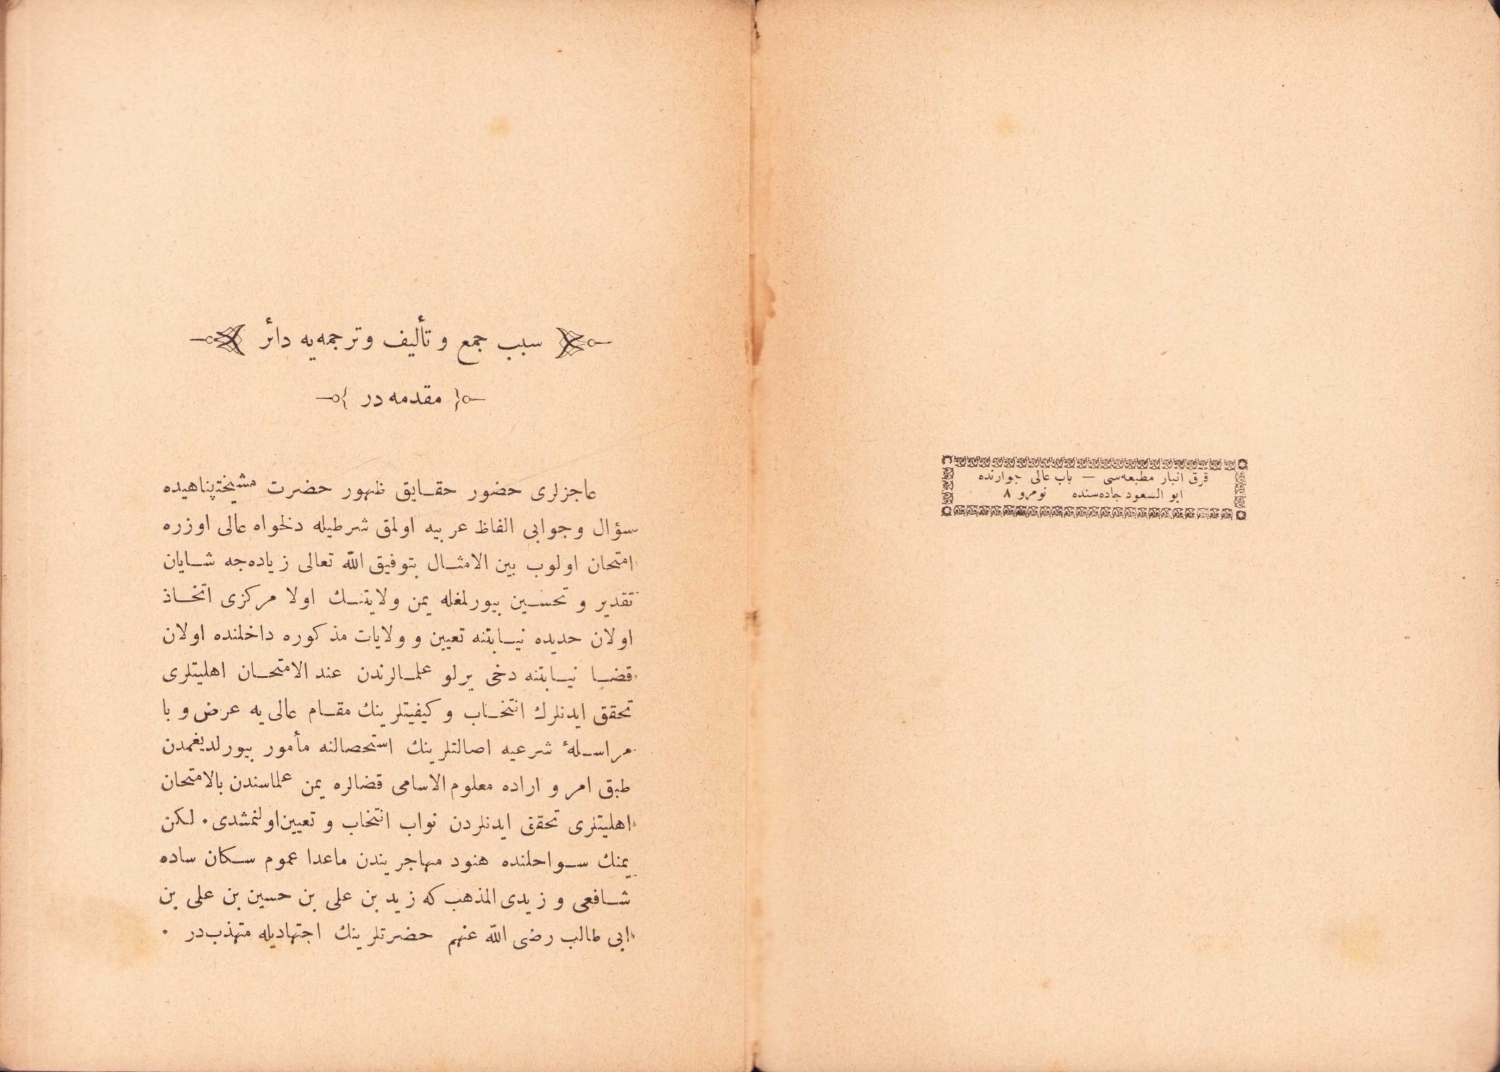 قرق انبار مطبعه‌سی — باب عالی جوارنده
ابو السعود جاده‌سنده نومرو ٨
سبب جمع و تألیف و ترجمه‌یه دائر
مقدمه در
عاجزلری حضور حقـایق ظهور حضرت مشیختپناهیده
سؤال و جوابی الفاظ عربیه اولمق شرطیله دلخواه عالی اوزره
امتحان اولوب بین الامثـال بتوفیق الله تعالی زیاده‌جه شـایان
تقدیر و تحسـین بیورلمغله یمن ولایتنـك اولا مرکزی اتخـاذ
اولان حدیده نیـابتنه تعیین و ولایات مذکوره داخلنده اولان
قضـا نیـابتنه دخی یرلو علمـالرندن عند الامتحـان اهلیتلری
تحقق ایدنلرك انتخـاب و کیفیتلرینك مقـام عالی‌یه عرض و با
مراسـلهٔ شرعیه اصالتلرینك استحصالنه مأمور بیورلدیغمدن
طبق امر و اراده معلوم الاسامی قضالره یمن علماسندن بالامتحان
اهلیتلری تحقق ایدنلردن نواب انتخاب و تعیین اولنمشدی. لکن
یمنك سـواحلنده هنود مهاجریندن ماعدا عموم سـکان ساده
شـافعی و زیدی المذهب که زید بن علی بن حسین بن علی بن
ابی طالب رضی الله عنهم حضرتلرینك اجتهادیله متهذب‌در .